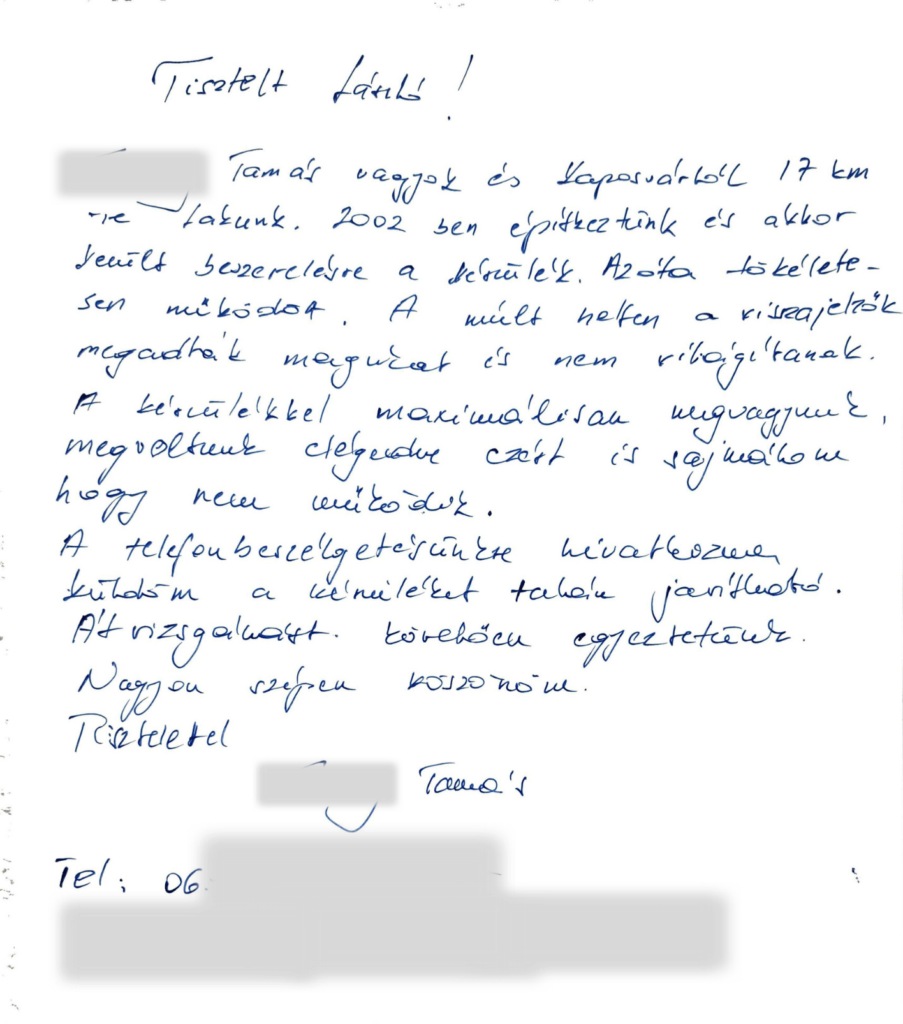 Tisztelt László!
Tamás vagyok és Kaposvártól 17 km
-re lakunk. 2002 ben építkeztünk és akkor
került beszerelésre a készülék. Azóta tökélete-
sen működött. A múlt héten a visszajelzők
megadták magukat és nem világítanak.
A készülékkel maximálisan megvagyunk,
megvoltunk elégedve ezért is sajnálom
hogy nem működik.
A telefonbeszélgetésünkre hivatkozva
küldöm a készüléket talán javítható.
Átvizsgálását. követően egyeztetünk.
Nagyon szépen köszönöm.
Tisztelettel
Tamás
Tel: 06